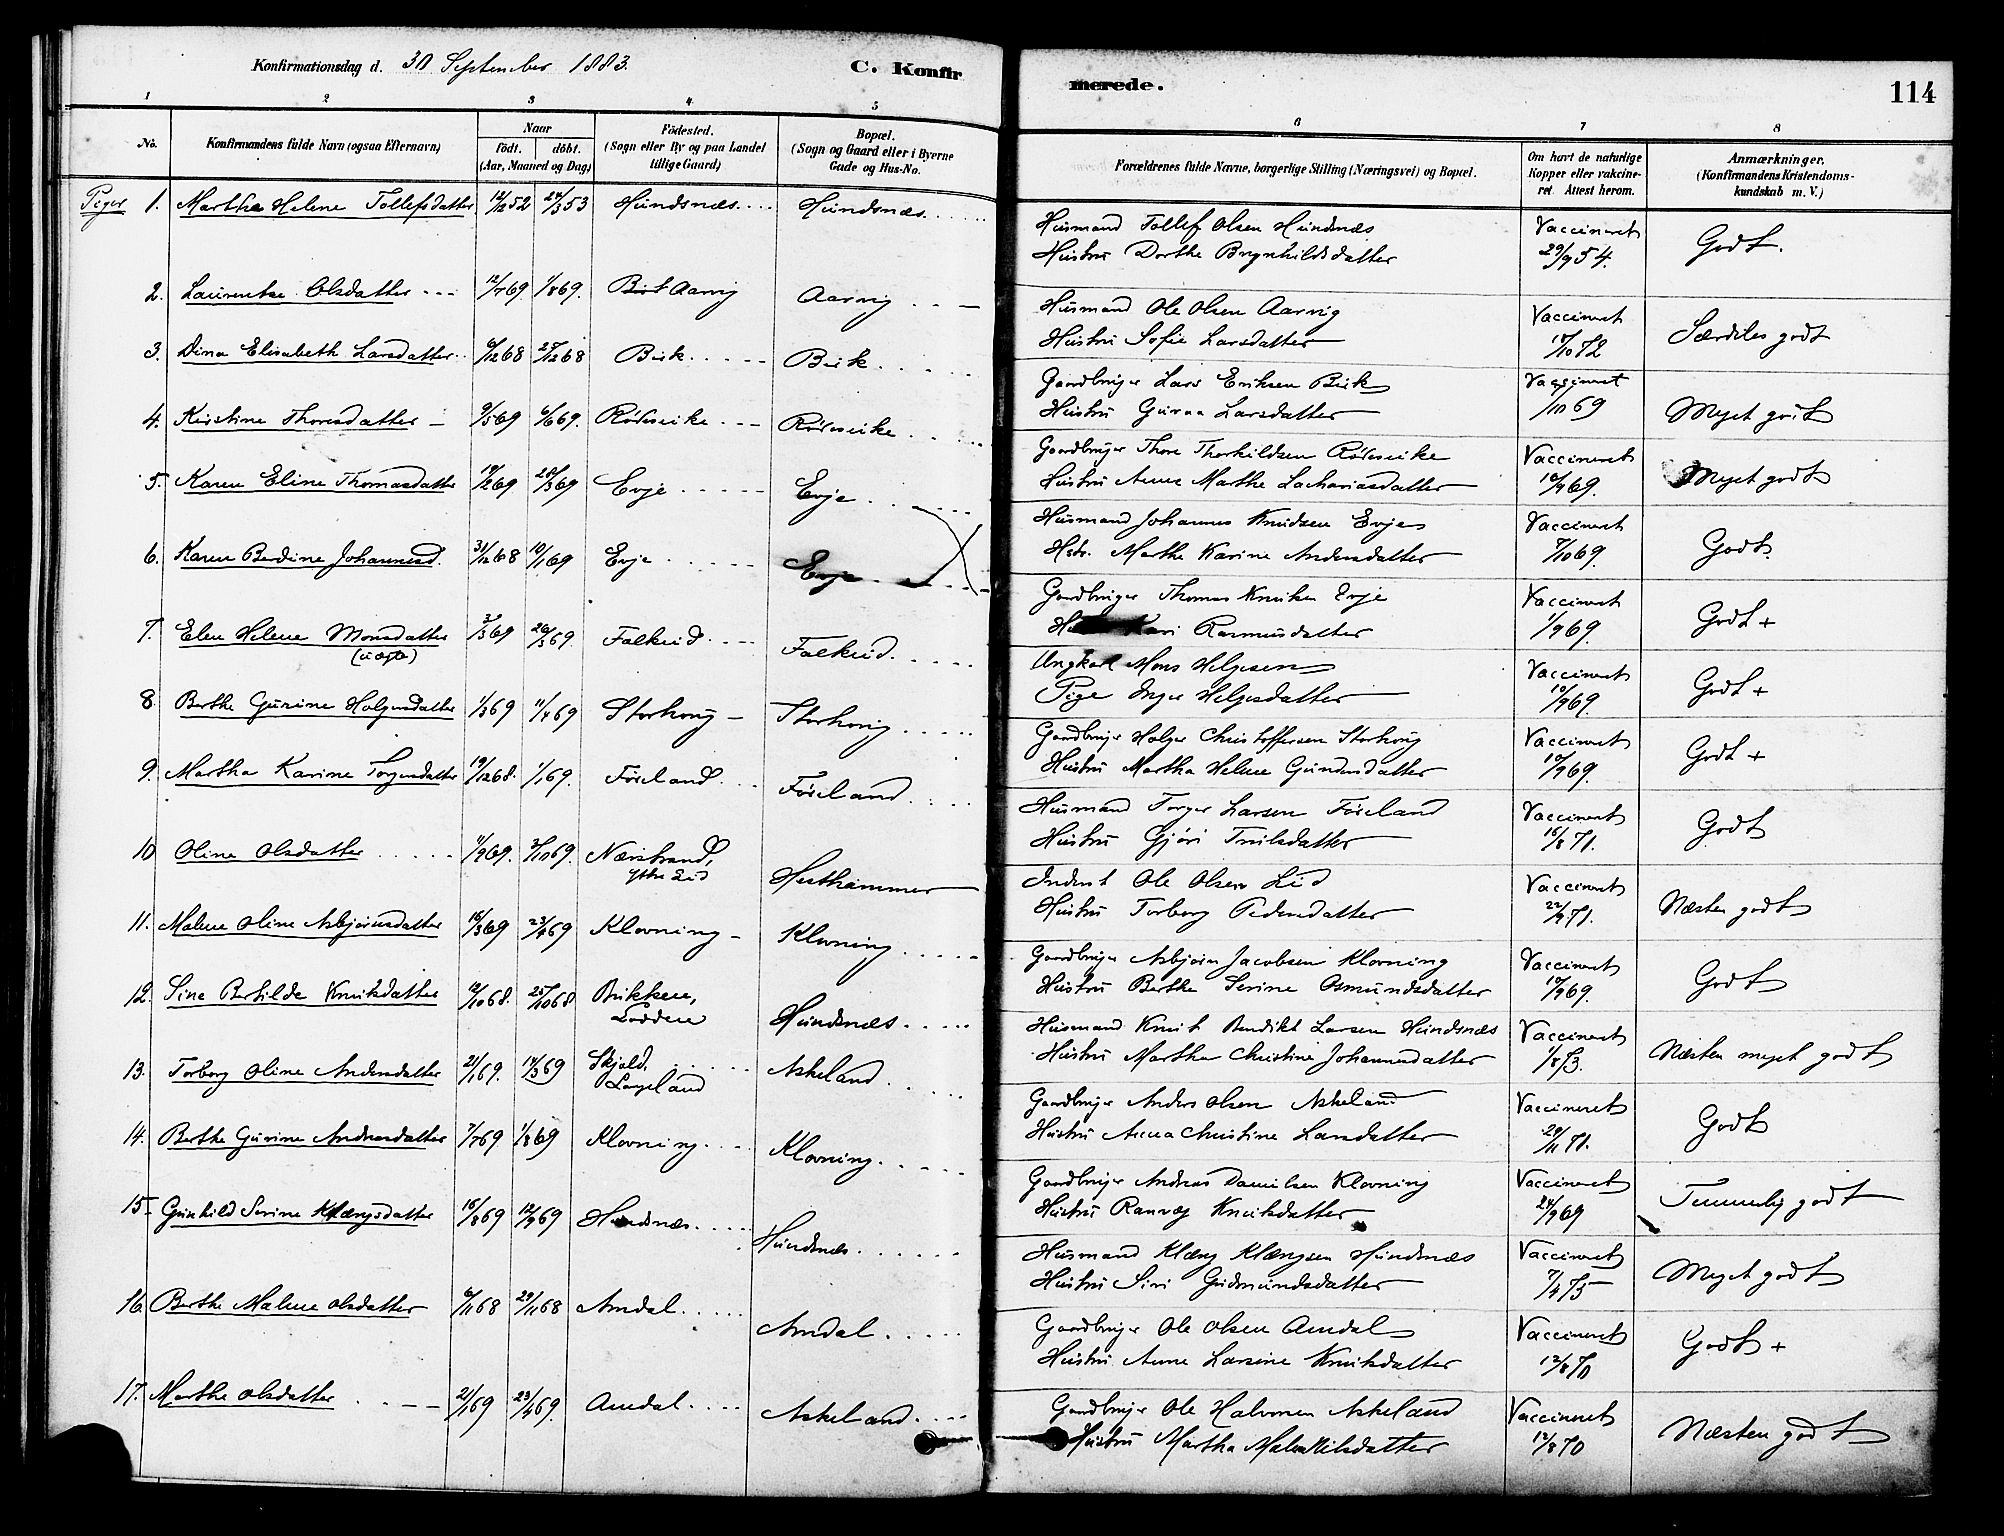 Konfirmationsdag d. 30 September 1883.
C. Konfirmerede.
114
1 2 3 4 5 6 7 8
No.
Konfirmandens fulde Navn (ogsaa Efternavn)
Naar
födt. döbt.
(Aar, Maaned og Dag)
Födested.
(Sogn eller By og paa Landet
tillige Gaard)
Bopæl.
(Sogn og Gaard eller i Byerne
Gade og Hus-No.
Forældrenes fulde Navne, borgerlige Stilling (Næringsvei) og Bopæl.
Om havt de naturlige
Kopper eller vakcine-
ret. Attest herom.
Anmærkninger.
(Konfirmandens Kristendoms-
kundskab m. V.)
Piger 1. Marthe Helene Tollefsdatter 12/12 52 28/3 53 Hundsnæs Hundsnæs
Husmand Tollef Olsen Hundsnæs
Hustru Dorthe Brynhildsdatter
Vaccineret 29/9 54. Godt.
2. Laurentse Olsdatter 12/7 69 1/8 69. Aarvig Aarvig
Husmand Ole Olsen Aarvig
Hustru Sofie Larsdatter
Vaccineret 18/10 72 Særdeles godt
3. Dina Elisabeth Larsdatter 6/12 68 27/12 68 Birk Birk
Gaardbruger Lars Eriksen Birk
Hustru Guroa Larsdatter
Vaccineret /10 69 Myet godt
4. Kirstine Thoresdatter 9/5 69 6/6 69. Rödseike Rödseike
Gaardbruger Thore Thorkildsen Rödseike
Hustru Anne Marthe Zachariasdatter
Vaccineret 10/9 69. Myet godt
5. Karen Eline Thomasdatter 19/2 69 28/3 69 Evje Evje
Husmand Johannes Knudsen Evje
Hstr. Marthe Karine Andersdatter
Vaccineret 7/10 69. Godt.
6. Karen Berdine Johannesd. 31/12 68 10/1 69 Evje Evje
Gaardbruger Thomas Knutsen Evje
Kari Rasmusdatter
Vaccineret 1/9 69. Godt +
7. Elen Helene Monsdatter 3/3 69 26/3 69 Falkeid Falkeid
(uægte)
Ungkarl Mons Helgesen
Pige Inger Helgesdatter
Vaccineret 10/9 69. Godt +
8. Berthe Gurine Holgersdatter 1/3 69 11/4 69 Storhoug Storhoug
Gaardbruger Holger Christoffersen Storhoug
Hustru Martha Helene Gundersdatter
Vaccineret 10/9 69. Godt +
9. Martha Karine Torgersdatter 19/12 68. 1/1 69. Föseland Föseland
Husmand Torger Larsen Föseland
Hustru Gjöri Truilsdatter
Vaccineret 16/8 71. Godt
10 Oline Olsdatter 11/9 69. 3/10 69. Nærstrand,
ytre Lid Hesthammer
Inderst Ole Olsen Lid
Hustru Torborg Pedersdatter
Vaccineret 22/9 71. Næsten godt
11. Malene Oline Asbjörnsdatter 16/3 69 23/4 69 Klovning Klovning
Gaardbruger Asbjörn Jacobsen Klovning
Hustru Berthe Serine Osmundsdatter
Vaccineret 10/9 69. Godt
12. Sine Bertilde Knutsdatter 12/10 68. 25/10 68 Brikken,
Lodden Hundsnæs
Husmand Knut Bendikt Larsen Hundsnæs
Hustru Martha Christine Johannesdatter
Vaccineret 1/8 73. Næsten myet godt
13. Torborg Oline Andersdatter 21/1 69. 14/3 69 Skjold,
Langeland Askeland
Gaardbruger Anders Olsen Askeland
Hustru Anna Christine Larsdatter
Vaccineret 29/11 71. Godt
14. Berthe Gurine Andreasdatter 7/7 69 1/8 69 Klovning Klovning
Gaardbruger Andreas Danielsen Klovning
Hustru Ranveg Knutsdatter
Vaccineret 24/9 69 Temmelig godt
15 Gunhild Serine Klængsdatter 16/8 69 12/9 69 Hundsnæs Hundsnæs
Husmand Klæng Klængsen Hundsnæs
Hustru Siri Gudmundsdatter
Vaccineret 7/4 75 Myet godt
16 Berthe Malene Olsdatter 6/11 68 29/11 68 Amdal Amdal
Gaardbruger Ole Olsen Amdal
Hustru Anne Larsine Knutsdatter
Vaccineret 12/8 70 Godt +
17. Marthe Olsdatter 21/1 69 23/4 69. Amdal Askeland
Gaardbruger Ole Halvorsen Askeland
Hustru Martha Malene Nilsdatter
Vaccineret 12/8 70 Næsten godt